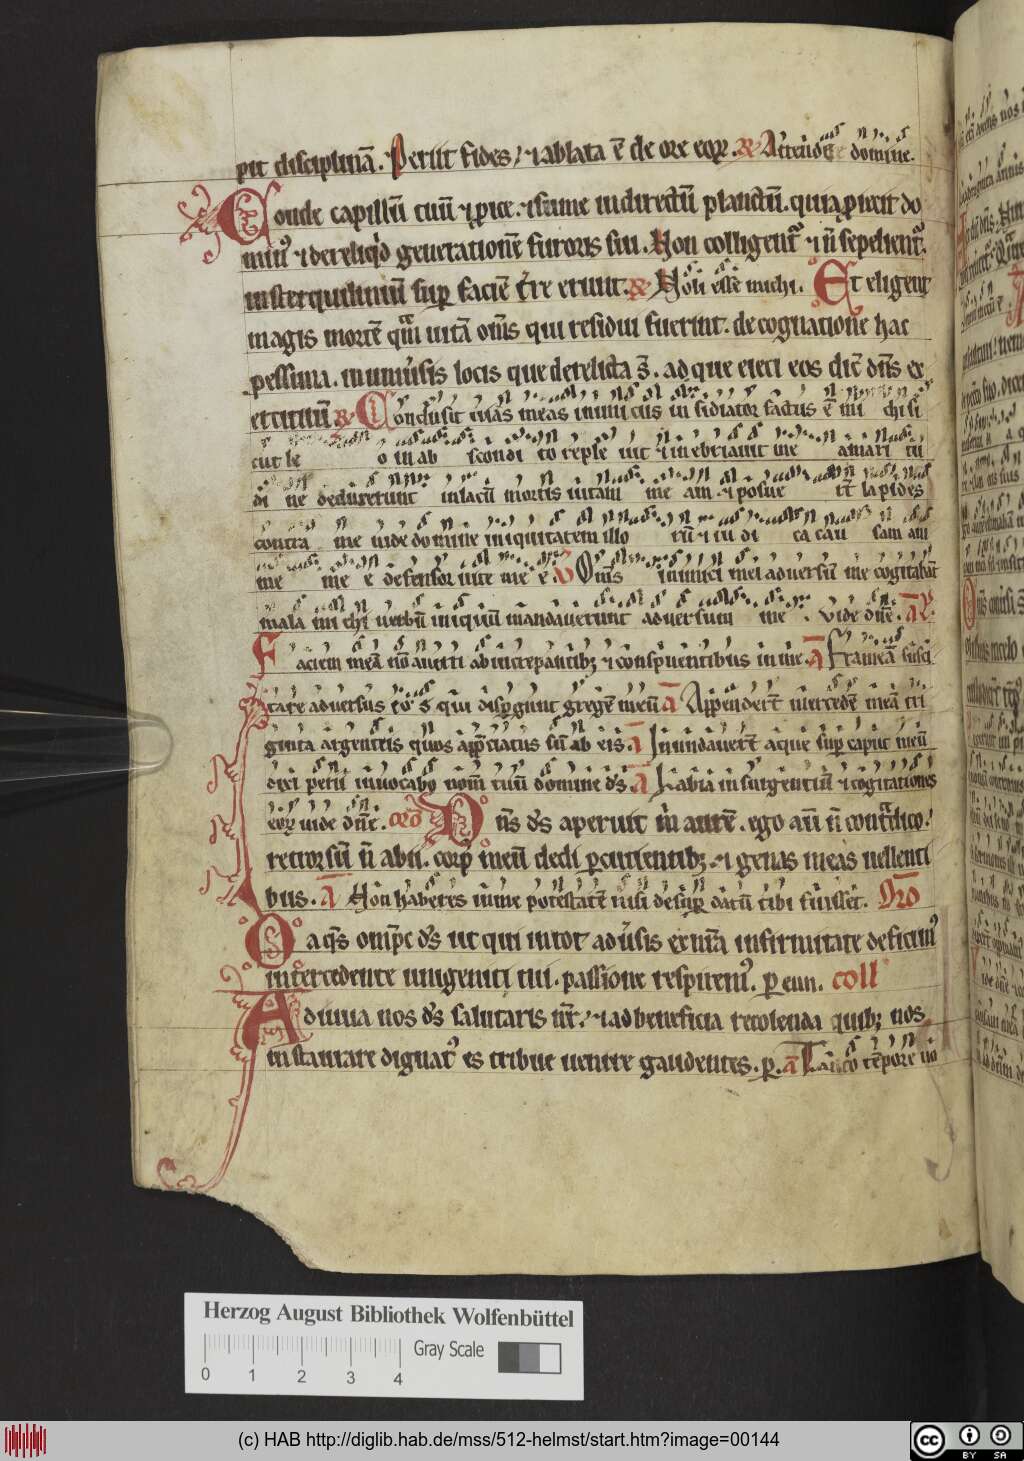 pit disciplinā. Periit fides, ⁊ ablata ē de ore eoꝝ. ℟ Attendite domine.
Tonde capillū tuū ⁊ ꝓice. ⁊ sume in directū planctū. quia ꝓiecit do
minꝰ ⁊ dereliqͥd generationē furoris sui. Non colligentᷣ ⁊ n̄ sepelientᷣ.
in sterquiliniū suꝑ faciē tͬre erunt. ℟ Noli esse michi. Et eligent
magis mortē qᷓm uitā om̄s qui residui fuerint. de cognatione hac
pessima. in uniuͬsis locis que derelicta s̄. ad que eieci eos dic̄ dn̄s ex
ercituū ℟ Conclusit uias meas inimicus in sidiator factus ē mi chi si
cut le o in ab scondi to reple uit ⁊ in ebriauit me amari tu
di ne deduxerunt in lacū mortis uitam me am ⁊ posue rt̄ lapides
contra me uide domine iniquitatem illo rū ⁊ iu di ca cau sam am
me me e defensor uite me e V Om̄s inimici mei aduersū me cogitabāt
mala mi chi uerbū iniquū mandauerunt aduersum me. Vide dn̄e. A L
Faciem meā nō auerti ab increpantibꝫ ⁊ conspuentibus in me. A Frameā susci
tare aduersus eoˢ qui dispͬgunt gregē meū A Appendert̄ mercedē meā tri
ginta argenteis quos app̄ciatus sū ab eis. A Inundauert̄ aque suꝑ caput meū
dixi perii inuocabo nom̄ tuū domine dˢ. A Labia insurgentiū ⁊ cogitationes
eoꝝ uide dn̄e. Dn̄s dˢ aperuit m̄ aurē. ego aū n̄ contᷓdico.
retrorsū n̄ abii. corpꝰ meū dedi ꝑcutientibꝫ. ⁊ genas meas uellenti
bus. A Non haberes in me potestatē nisi desuꝑ datū tibi fuisset. Oro
Da qˢ omp̄c dˢ ut qui in tot aduͬsis ex nr̄a infirmitate deficimꝰ
intercedente unigeniti tui. passione respiremꝰ. ꝑ eun. coll
Adiuua nos dˢ salutaris nr̄. ⁊ ad beneficia recolenda quibꝫ nos
instaurare dignatꝰ es tribue uenire gaudentes. ꝑ. A Tanto tēpore uo
Herzog August Bibliothek Wolfenbüttel
Gray Scale
0 1 2 3 4
(c) HAB http://diglib.hab.de/mss/512-helmst/start.htm?image=00144
cc BY SA